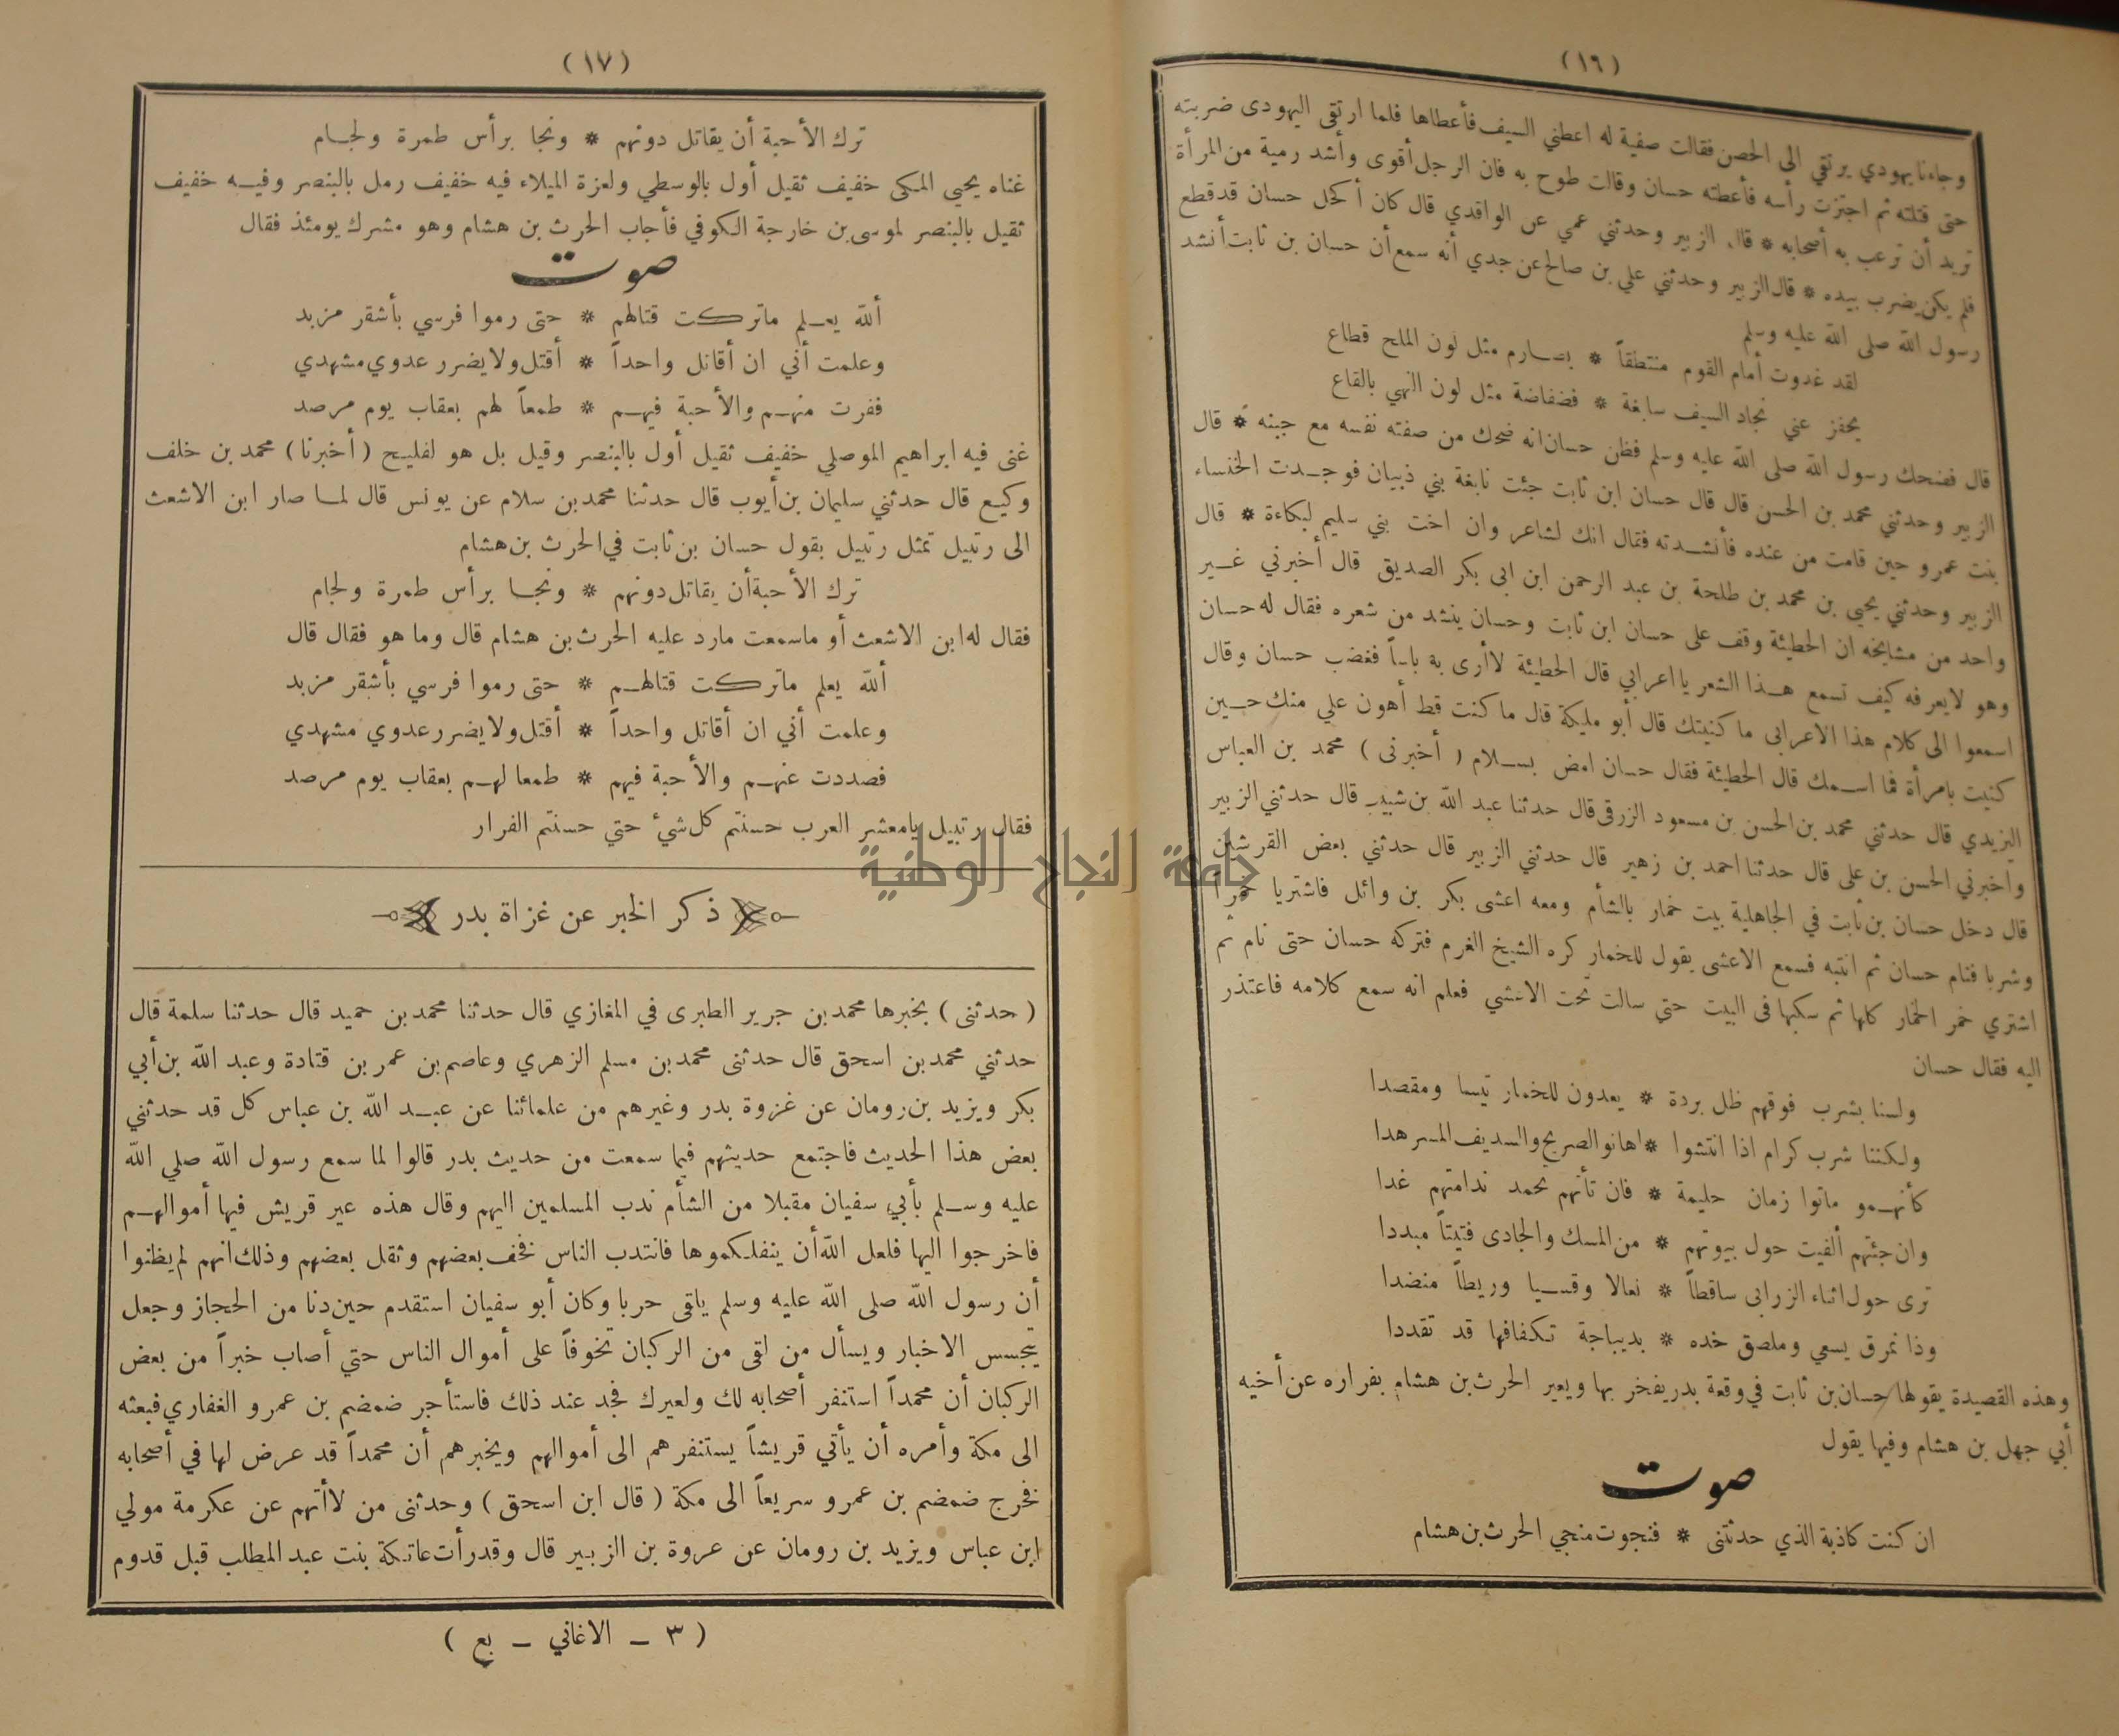 (١٦)
وجاءنا يهودي يرتقي الى الحصن فقالت صفية له اعطني السيف فأعطاها فلما ارتقى اليهودى ضربته
حتى قتلته ثم اجتزت رأسه فأعطته حسان وقالت طوح به فان الرجل أقوى وأشد رمية من المرأة
تريد أن ترعب به أصحابه * قال الزبير وحدثني عمي عن الواقدي قال كان أكحل حسان قد قطع
فلم يكن يضرب بيده * قال الزبير وحدثني علي بن صالح عن جدي أنه سمع أن حسان بن ثابت أنشد
رسول الله صلى الله عليه وسلم
لقد غدوت أمام القوم منتطقاً * بصارم مثل لون الملح قطاع
يحفز عني نجاد السيف سابغة * فضفاضة مثل لون النهي بالقاع
قال فضحك رسول الله صلى الله عليه وسلم فظن حسان انه ضحك من صفته نفسه مع جبنه * قال
الزبير وحدثني محمد بن الحسن قال قال حسان ابن ثابت جئت نابغة بني ذبيان فوجدت الخنساء
بنت عمرو حين قامت من عنده فأنشدته فقال انك لشاعر وان اخت بني سليم لبكاءة * قال
الزبير وحدثني يحيى بن محمد بن طلحة بن عبد الرحمن ابن ابى بكر الصديق قال أخبرني غير
واحد من مشايخه ان الحطيئة وقف على حسان ابن ثابت وحسان ينشد من شعره فقال له حسان
وهو لايعرفه كيف تسمع هذا الشعر يااعرابي قال الحطيئة لاأرى به باساً فغضب حسان وقال
اسمعوا الى كلام هذا الاعرابى ما كنيتك قال أبو مليكة قال ما كنت قط أهون علي منك حين
كنيت بامرأة فما اسمك قال الحطيئة فقال حسان امض بسلام (أخبرنى) محمد بن العباس
اليزيدي قال حدثني محمد بن الحسن بن مسعود الزرقى قال حدثنا عبد الله بن شبيب قال حدثني الزبير
وأخبرني الحسن بن على قال حدثنا احمد بن زهير قال حدثني الزبير قال حدثني بعض القرشيين
قال دخل حسان بن ثابت في الجاهلية بيت خمار بالشأم ومعه اعشى بكر بن وائل فاشتريا خمراً
وشربا فنام حسان ثم انتبه فسمع الاعشى يقول للخمار كره الشيخ الغرم فتركه حسان حتى نام ثم
اشتري خمر الخمار كلها ثم سكبها فى البيت حتي سالت تحت الاعشي فعلم انه سمع كلامه فاعتذر
اليه فقال حسان
ولسنا بشرب فوقهم ظل بردة * يعدون للخمار تيسا ومقصدا
ولكننا شرب كرام اذا انتشوا * اهانوا الصريح والسديف المسرهدا
كأنهمو ماتوا زمان حليمة * فان تأتهم تحمد ندامتهم غدا
وان جئتهم ألفيت حول بيوتهم * من المسك والجادى فتيتاً مبددا
ترى حول اثناء الزرابى ساقطاً * نعالا وقسيا وريطاً منضدا
وذا نمرق يسعي وملصق خده * بديباجة تكفافها قد تقددا
وهذه القصيدة يقولها حسان بن ثابت في وقعة بدر يفخر بها ويعير الحرث بن هشام بفراره عن أخيه
أبي جهل بن هشام وفيها يقول
صوت
ان كنت كاذبة الذي حدثتنى * فنجوت منجي الحرث بن هشام
(١٧)
ترك الأحبة أن يقاتل دونهم * ونجا برأس طمرة ولجام
غناه يحيى المكى خفيف ثقيل أول بالوسطي ولعزة الميلاء فيه خفيف رمل بالبنصر وفيه خفيف
ثقيل بالبنصر لموسى بن خارجة الكوفي فأجاب الحرث بن هشام وهو مشرك يومئذ فقال
صوت
ألله يعلم ماتركت قتالهم * حتى رموا فرسي بأشقر مزبد
وعلمت أني ان أقاتل واحداً * أقتل ولا يضرر عدوي مشهدي
ففرت منهم والأحبة فيهم * طمعاً لهم بعقاب يوم مرصد
غنى فيه ابراهيم الموصلي خفيف ثقيل أول بالبنصر وقيل بل هو لفليح (أخبرنا) محمد بن خلف
وكيع قال حدثني سليمان بن أيوب قال حدثنا محمد بن سلام عن يونس قال لما صار ابن الاشعث
الى رتبيل تمثل رتبيل بقول حسان بن ثابت في الحرث بن هشام
ترك الأحبة أن يقاتل دونهم * ونجا برأس طمرة ولجام
فقال له ابن الاشعث أو ماسمعت مارد عليه الحرث بن هشام قال وما هو فقال قال
ألله يعلم ماتركت قتالهم * حتى رموا فرسي بأشقر مزبد
وعلمت أني ان أقاتل واحداً * أقتل ولا يضرر عدوي مشهدي
فصددت عنهم والأحبة فيهم * طمعا لهم بعقاب يوم مرصد
فقال رتبيل يامعشر العرب حسنتم كل شئ حتي حسنتم الفرار
جامعة النجاح الوطنية
ذكر الخبر عن غزاة بدر
(حدثنى) بخبرها محمد بن جرير الطبرى في المغازي قال حدثنا محمد بن حميد قال حدثنا سلمة قال
حدثني محمد بن اسحق قال حدثنى محمد بن مسلم الزهري وعاصم بن عمر بن قتادة وعبد الله بن أبي
بكر ويزيد بن رومان عن غزوة بدر وغيرهم من علمائنا عن عبد الله بن عباس كل قد حدثني
بعض هذا الحديث فاجتمع حديثهم فيما سمعت من حديث بدر قالوا لما سمع رسول الله صلي الله
عليه وسلم بأبي سفيان مقبلا من الشأم ندب المسلمين اليهم وقال هذه عير قريش فيها أموالهم
فاخرجوا اليها فلعل الله أن ينفلكموها فانتدب الناس فخف بعضهم وثقل بعضهم وذلك انهم لم يظنوا
أن رسول الله صلى الله عليه وسلم يلقى حربا وكان أبو سفيان استقدم حين دنا من الحجاز وجعل
يتجسس الاخبار ويسأل من لقى من الركبان تخوفاً على أموال الناس حتي أصاب خبراً من بعض
الركبان أن محمداً استنفر أصحابه لك ولعيرك فجد عند ذلك فاستأجر ضمضم بن عمرو الغفاري فبعثه
الى مكة وأمره أن يأتي قريشاً يستنفرهم الى أموالهم ويخبرهم أن محمداً قد عرض لها في أصحابه
فخرج ضمضم بن عمرو سريعاً الى مكة (قال ابن اسحق) وحدثنى من لاأتهم عن عكرمة مولي
ابن عباس ويزيد بن رومان عن عروة بن الزبير قال وقد رأت عاتكة بنت عبد المطلب قبل قدوم
(٣ ــ الاغاني ــ بع)